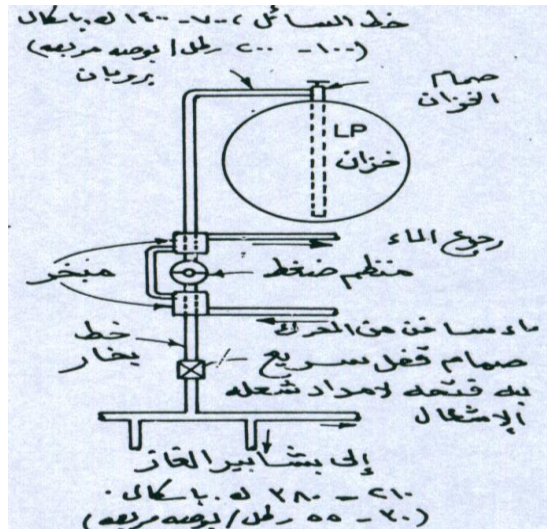 خط السائل ٧٠٠ - ١٤٠٠ ك باسكال
(١٠٠ - ٢٠٠ رطل / بوصه مربعه)
بروبان
صمام
الخزان
LP
خزان
رجوع الماء
مبخر
منظم ضغط
ماء ساخن من المحرك
خط
بخار
صمام قفل سريع
به فتحه لامداد شعله
الإشعال
إلى بشابير الغاز
٢١٠ - ٣٨٠ ك. باسكال
(٣٠ - ٥٥ رطل / بوصه مربعه)